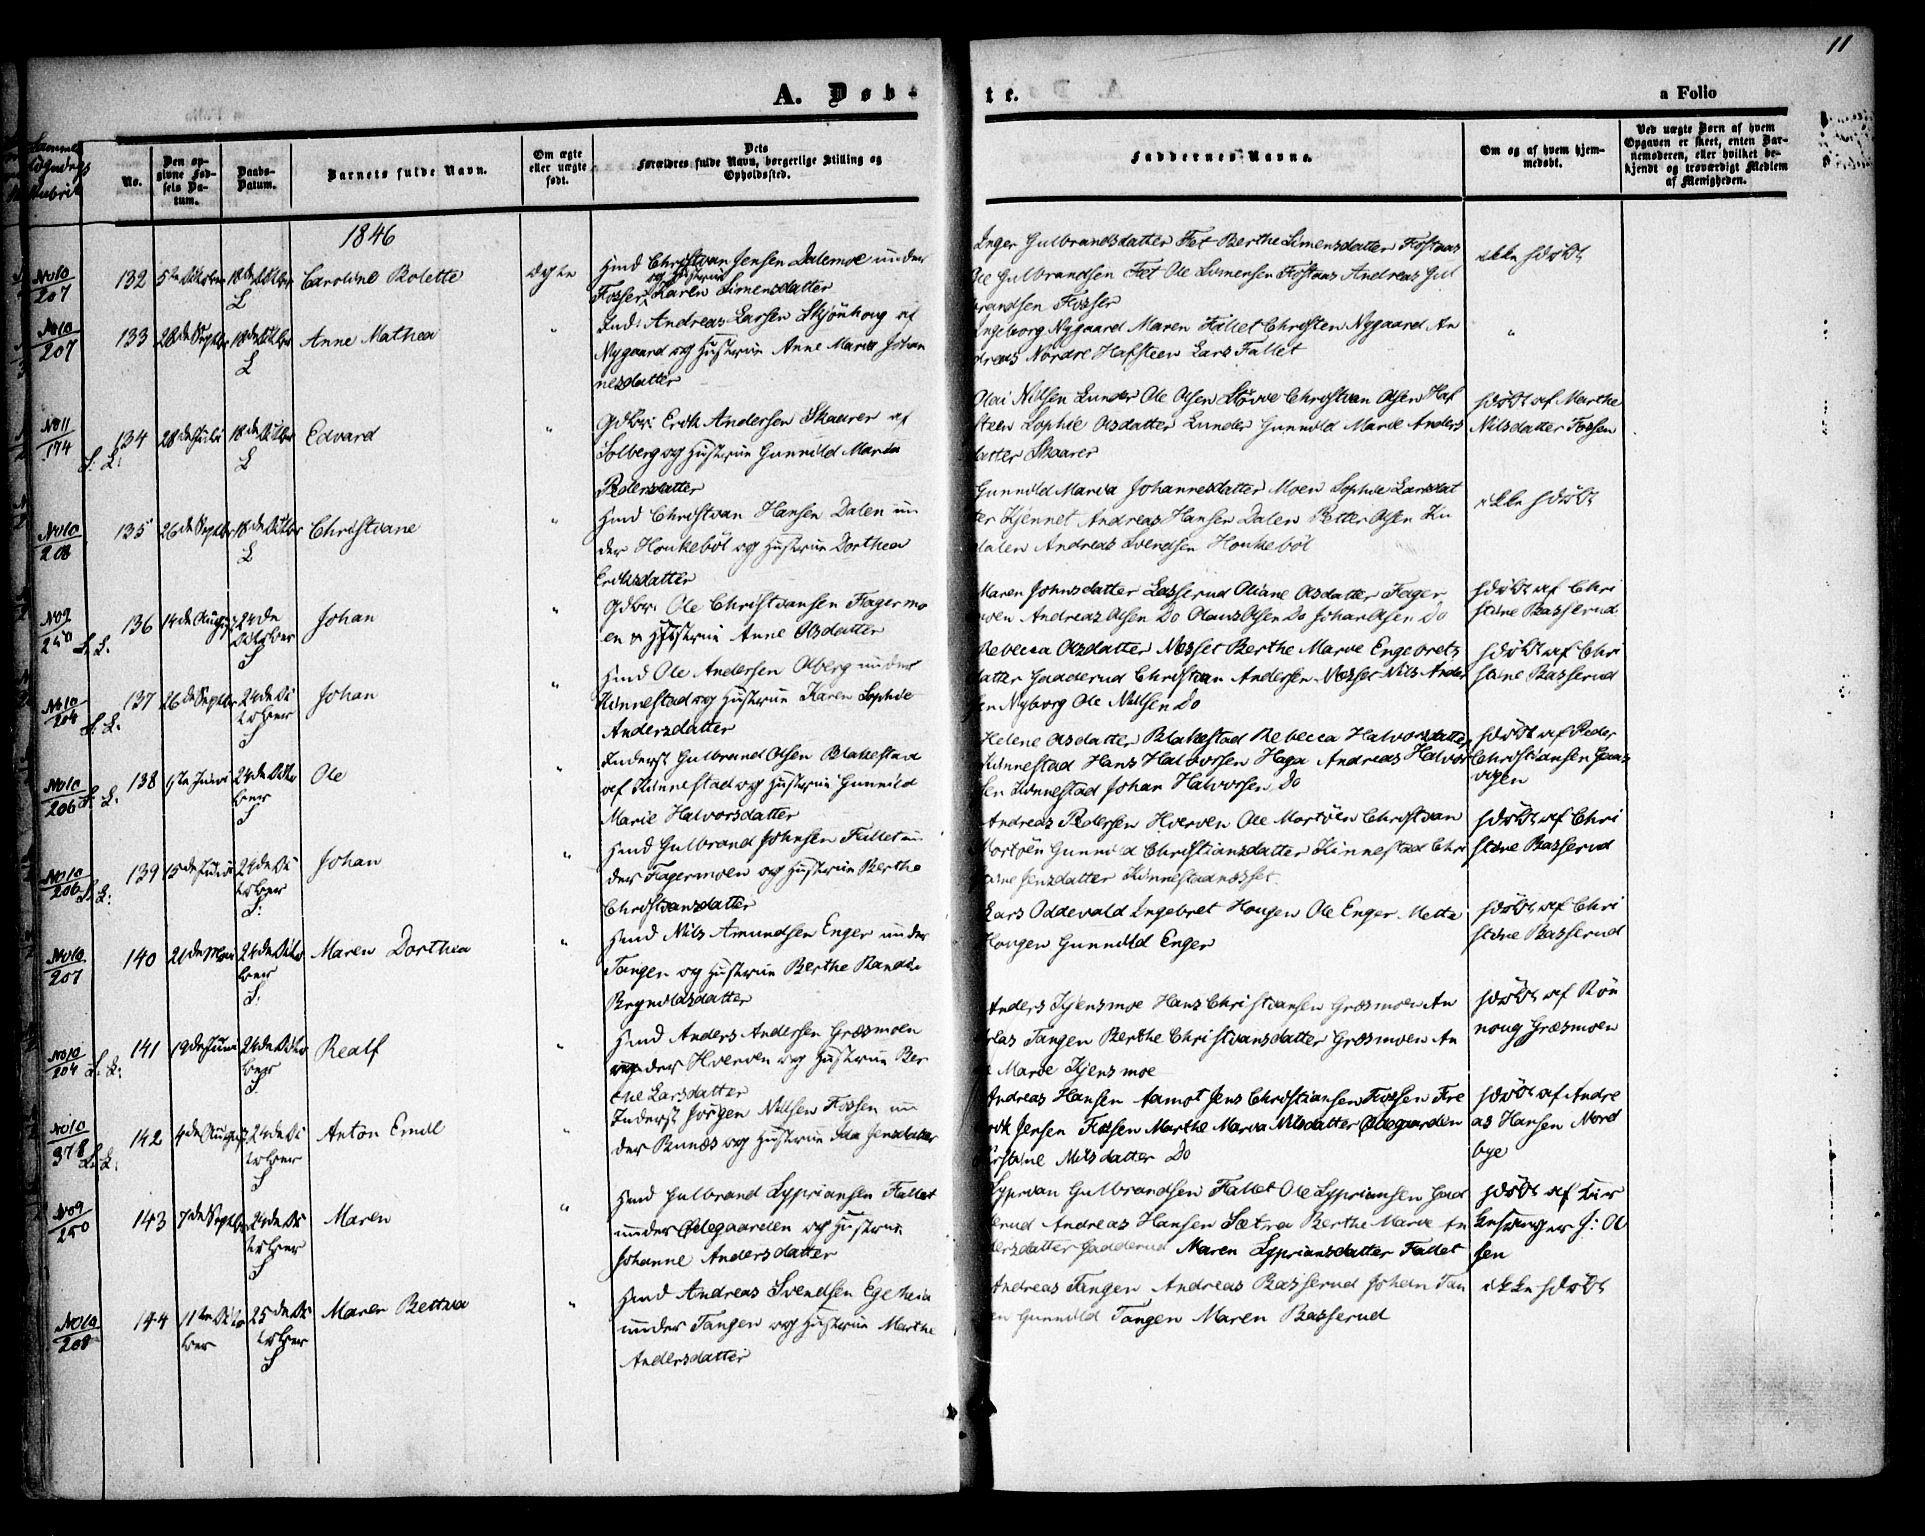 11
A. Døb-
te.
a Folio
No.
Den op-
givne Fød-
sels Da-
tum.
Daabs-
Datum.
Barnets fulde Navn.
Om ægte
eller uægte
født.
Dets
Forældres fulde Navn, borgerlige Stilling og
Opholdssted.
Faddernes Navne.
Om og af hvem hjem-
medøbt.
Ved uægte Børn af hvem
Opgaven er skeet, enten Bar-
nemoderen, eller hvilket be-
kjendt og troværdigt Medlem
af Menigheden.
1846
No 10
207
132
Caroline Bolette
ægte
Huusmd Christian Jensen Dalemoe under
og Hustrue
Fosser Karen Simensdatter
Inger Gulbrandsdatter Fet Berthe Simensdatter Fostaas
Ole Gulbrandsen Fet Ole Simensen Fostaas Andreas Gul
brandsen Fosser
ikke hjdøbt
No 10
207
133
28de Septbr
18de Octbr
L
Anne Mathea
"
Ind: Andreas Larsen Skjønhoug af
Nygaard og Hustrue Anne Maria Johan
nesdatter
Ingeborg Nygaard Maren Fallet Christen Nygaard An
dreas Nordre Hafsteen Lars Fallet
"
No 11
194
S. L.
134
28de Juli
18de Octbr
L
Edvard
"
Gdbr: Erik Andersen Skaarer af
Solberg og Hustrue Gunnild Maria
Pedersdatter
Olai Nilsen Lunder Ole Olsen Støvve Christian Olsen Haf
steen Sophie Olsdatter Lunder Gunnild Marie Anders
datter Skaarer
hjdøbt af Marthe
Nilsdatter Fossen
No 10
208
135
26de Septbr
18de Octbr
L
Christiane
"
Hmd Christian Hansen Dalen un
der Honkebøl og Hustrue Dorthea
Eriksdatter
Gunnild Maria Johannesdatter Moen Sophie Larsdat
ter Kjennet Andreas Hansen Dalen Petter Olsen Lu
dalen Andreas Svendsen Honkebøl
ikke hjdøbt
No 9
250
S. L.
136
14de August
24de
October
S
Johan
"
Gdbr: Ole Christiansen Fagermo
en & Hustrue Anne Olsdatter
Maren Johnsdatter Lasserud Oliane Olsdatter Fager
moen Andreas Olsen Do Olaus Olsen Do Johan Olsen Do
hjdøbt af Chri
stine Basserud
No 10
204
S. L.
137
26de Septbr
24de Oc
tober
S
Johan
"
Hmd Ole Andersen Aaberg under
Kinnestad og Hustrue Karen Sophie
Andersdatter
Rebecca Olsdatter Næsset Berthe Marie Engebrets
datter Gadderud Christian Andersen Næsset Nils Ander
sen Nyborg Ole Nilsen Do
hjdøbt af Chri
stine Basserud
No 10
206
S. L.
138
6te Juni
24de Octo
ber
S
Ole
"
Inderst Gulbrand Olsen Blakestad
af Kinnestad og Hustrue Gunnild
Marie Halvorsdatter
Helene Olsdatter Blakestad Rebecca Halvorsdatter
Kinnestad Hans Halvorsen Haga Andreas Halvor
sen Kinnestad Johan Halvorsen Do
hjdøbt af Peder
Christiansen Gaas
vigen
No 10
206
S. L.
139
15de Juni
24de Oc
tober
S:
Johan
"
Hmd Gulbrand Johnsen Fallet un
der Fagermoen og Hustrue Berthe
Christiansdatter
Andreas Pedersen Hverven Ole Mortøen Christian
Mortøen Gunnild Christiansdatter Kinnestad Chri
stine Jensdatter Kinnestadnæsset
hjdøbt af Chri
stine Basserud
No 10
207
140
21de Mai
24de Octo
ber
S:
Maren Dorthea
"
Hmd Nils Amundsen Enger under
Tangen og Hustrue Berthe Randie
Brynildsdatter
Lars Oddevald Ingebret Hougen Ole Enger Mette
Hougen Gunnild Enger
hjdøbt af Chri
stine Basserud
No 10
204
S. L.
141
19de Juni
24de Octo
ber
S.
Realf
"
Hmd Anders Andersen Græsmoen
under Hverven og Hustrue Ber
the Larsdatter
Anders Kjensmoe Hans Christiansen Græsmoen An
dreas Tangen Berthe Christiansdatter Græsmoen An
ne Marie Kjensmoe
hjdøbt af Rön
noug Græsmoen
No 10
378
S. L.
142
4de August
24de Oc
tober
S
Anton Emil
"
Inderst Jørgen Nilsen Fossen un
der Bunæs og Hustrue Ida Jensdatter
Andreas Hansen Aamot Jens Christiansen Fossen Fre
drik Jensen Fossen Marthe Maria Nilsdatter Ødegaarden
Kirstine Nilsdatter Do
hjdøbt af Andre
as Hansen Nord
bye
No 9
250
143
7de Septbr
24de Oc
tober
S
Maren
"
Hmd Gulbrand Cypriansen Fallet
under Ødegaarden og Hustrue
Johanne Andersdatter
Cyprian Gulbrandsen Fallet Ole Cypriansen Gad
derud Andreas Hansen Sætra Berthe Marie An
dersdatter Gadderud Maren Cypriansdatter Fallet
hjdøbt af Kir
kesanger J: Ol
sen
No 10
208
144
11te Octo
ber
25de Oc
tober
S
Maren Bettua
"
Hmd Andreas Svendsen Egeheia
under Tangen og Hustrue Marthe
Andersdatter
Andreas Tangen Andreas Basserud Johan Tan
gen Gunnild Tangen Maren Basserud
ikke hjdøbt